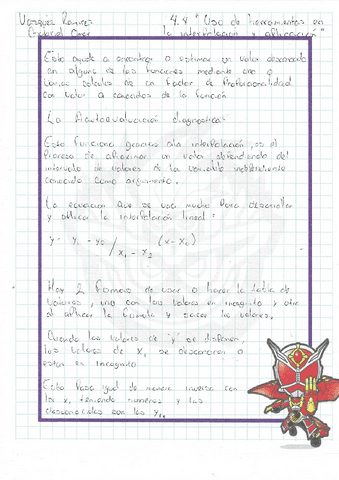 Vazquez Ramirez
4.4 "Uso de herramientas en
Cristobal Omar
la interpolación y aplicación"
Esto ayuda a encontrar o estimar un valor desconocido
en alguna de las funciones mediante uno o
varios calculos de un factor de Proporcionalidad
con valor a conocidos de la función
La Autoevaluación diagnostica:
Esto funciona gracias a la interpolación, es el
Proceso de aproximar un valor dependiendo del
intervalo de valores de la variable independiente
conocida como argumento.
La ecuación que se usa mucho Para desarrollar
y aplicar la interpolación lineal:
y - y1 - y0 / x1 - x2 (x - x0)
Hay 2 formas de usar o hacer la tabla de
valores, una con los valores en incognita y otra
al aplicar la formula y sacar los valores.
Cuando los valores de y se disponen,
los valores de x, se desconocen o
estan es incognita
Esto Pasa igual de manera inversa con
los x, teniendo numeros y los
desconocidos con los y,.